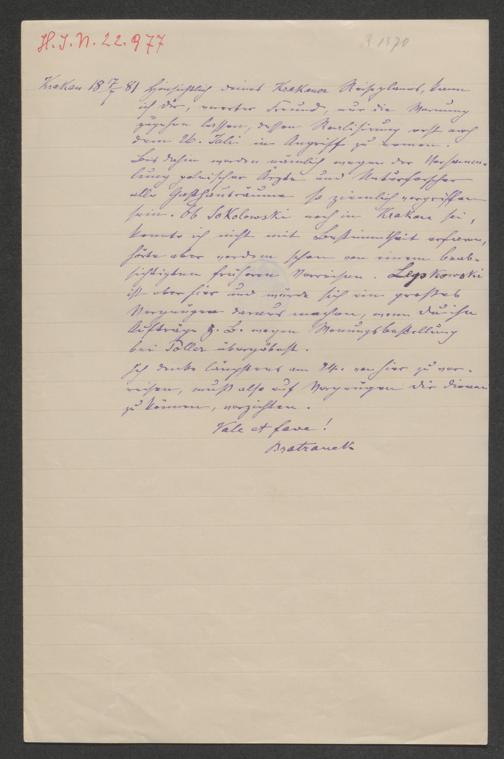 H.I.N. 22.977
Krakau 18 7/7 81 Hinsichtlich deines Krakauer Reiseplanes, kann
ich dir, werter Freund, nur die Warnung
zugehen lassen, dessen Realisirung erst nach
dem 26. Juli in Angriff zu nehmen.
Bis dahin werden nämlich wegen der Versamm-
lung polnischer Ärzte und Naturforscher
alle Gasthausräume so ziemlich vergriffen
sein. Ob Sokolowski noch in Krakau sei,
konnte ich nicht mit Bestimmtheit erfahren,
hörte aber vordem schon von einem beab-
sichtigten früheren Verreisen. Lepkowski
ist aber hier und würde sich ein großes
Vergnügen daraus machen, wenn du ihm
Aufträge z. B. wegen Wonungsbestellung
bei Poller übergäbest.
Ich denke längstens am 24. von hier zu ver-
reisen, muß also auf Vergnügen dir dienen
zu können, verzichten.
Vale et fave!
Bratranek